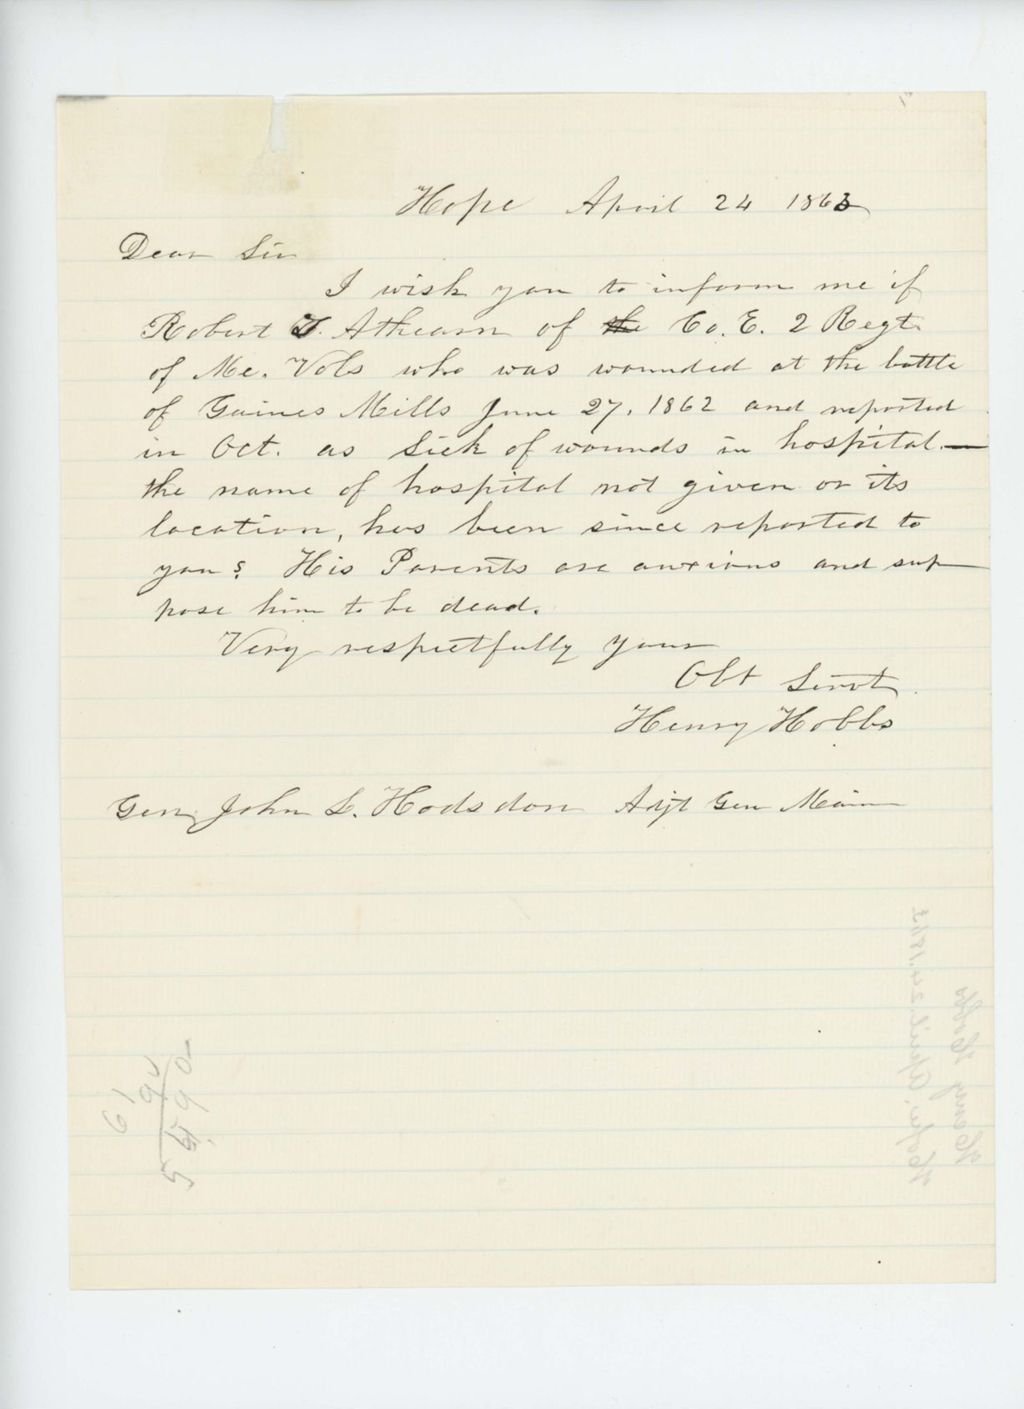 Hope April 24 1863
Dear Sir
I wish you to inform me if
Robert T. Athearn of the Co. E. 2 Regt.
of Me. Vols who was wounded at the battle
of Gaines Mills June 27, 1862 and reported
in Oct. as Sick of wounds in hospital.—
the name of hospital not given or its
location, has been since reported to
you? His Parents are anxious and sup
pose him to be dead.
Very respectfully Your
Obt Servt.
Henry Hobbs
Gen John L. Hodsdon Adjt Gen Maine
Hope, April 24, 1863
Henry Hobbs
61
90